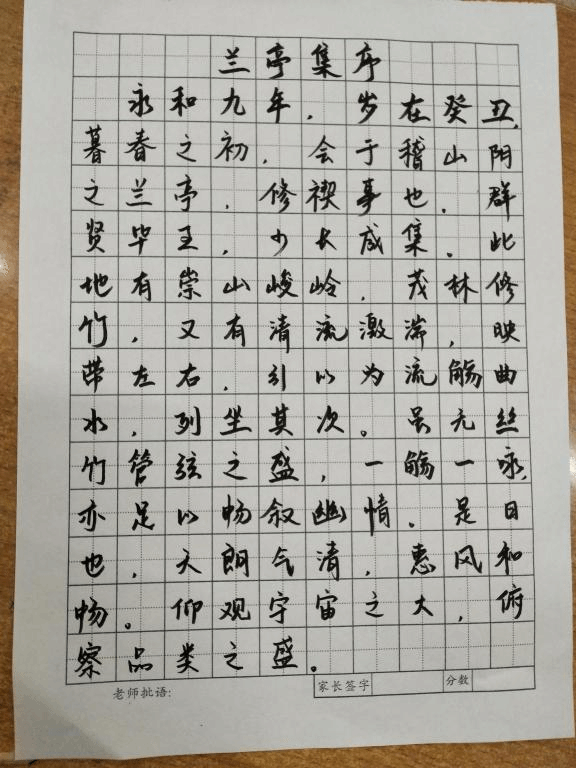 兰亭集序
永和九年，岁在癸丑，
暮春之初，会于稽山阴
之兰亭，修禊事也。群
贤毕至，少长咸集。此
地有崇山峻岭，茂林修
竹，又有清流激湍，映
带左右，引以为流觞曲
水，列坐其次。虽无丝
竹管弦之盛，一觞一咏，
亦足以畅叙幽情。是日
也，天朗气清，惠风和
畅。仰观宇宙之大，俯
察品类之盛。
老师批语：
家长签字
分数